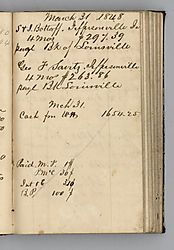 March 31 1848
S & J. Bottorf, Jeffersonville In
4 mos $297.39
payl Bk of Louisville
Geo F Savitz, Jeffersonville
4 mo $263.86
payl Bk Louisville
Mch 31.
Cash for 1654.25
Paid. M. K. 1
36
Int
B.P. 100